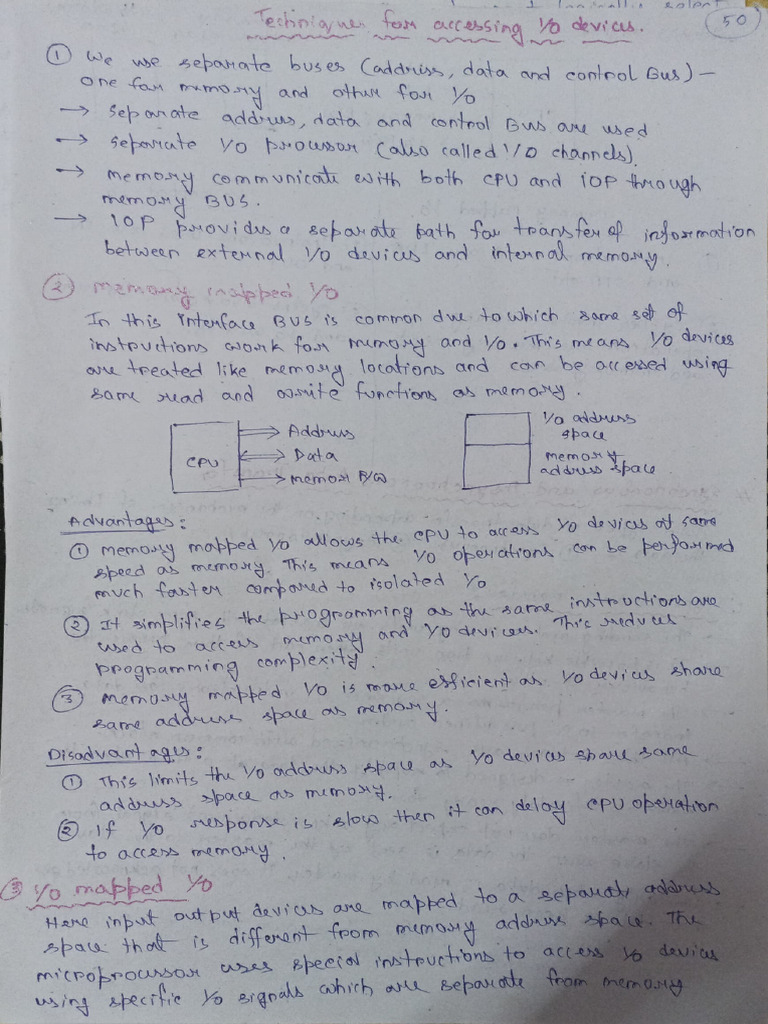 Techniques for accessing I/O devices.
50
① We use separate buses (address, data and control Bus) –
one for memory and other for I/O
→ Separate address, data and control Bus are used
→ Separate I/O processor (also called I/O channels).
→ memory communicate with both CPU and IOP through
memory BUS.
→ IOP provides a separate path for transfer of information
between external I/O devices and internal memory.
② memory mapped I/O
In this interface BUS is common due to which same set of
instructions work for memory and I/O. This means I/O devices
are treated like memory locations and can be accessed using
same read and write functions as memory.
CPU
Address
Data
memor R/W
I/O address
space
memory
address space
Advantages:
① memory mapped I/O allows the CPU to access I/O devices at same
speed as memory. This means I/O operations can be performed
much faster compared to isolated I/O
② It simplifies the programming as the same instructions are
used to access memory and I/O devices. This reduces
programming complexity.
③ memory mapped I/O is more efficient as I/O devices share
same address space as memory.
Disadvantages:
① This limits the I/O address space as I/O devices share same
address space as memory.
② If I/O response is slow then it can delay CPU operation
to access memory.
③ I/O mapped I/O
Here input output devices are mapped to a separate address
space that is different from memory address space. The
microprocessor uses special instructions to access I/O devices
using specific I/O signals which are separate from memory